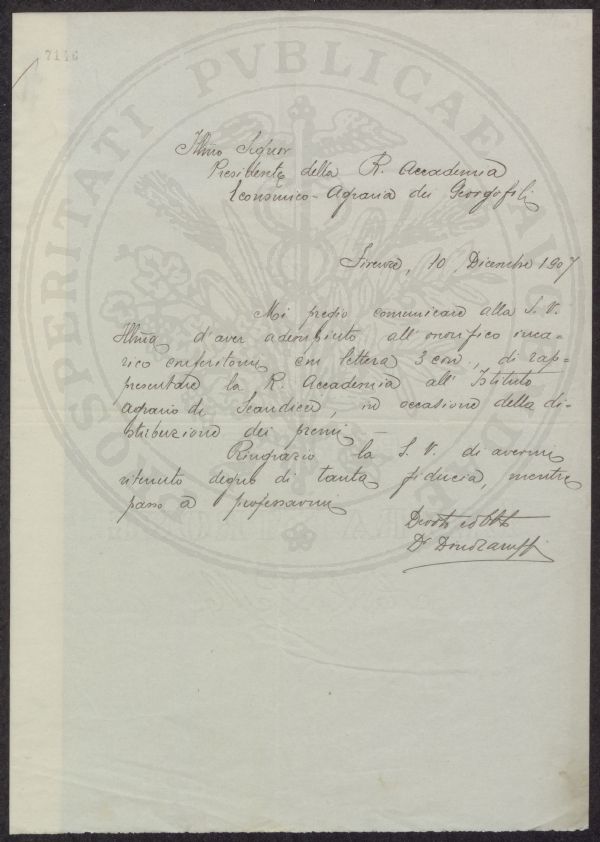 7146
PROSPERITATI PVBLICAE AVGENDAE
Illmo Signor
Presidente della R. Accademia
Economico-Agraria dei Georgofili
Firenze, 10 Dicembre 1907
Mi pregio comunicare alla S. V.
Illma d'aver adempiuto all'onorifico inca=
rico conferitomi con lettera 3 corr., di rap=
presentare la R. Accademia all'Istituto
Agrario di Scandicci, in occasione della di=
stribuzione dei premi.
Ringrazio la S. V. di avermi
ritenuto degno di tanta fiducia, mentre
passo a professarmi
Devoto obbl
Dr